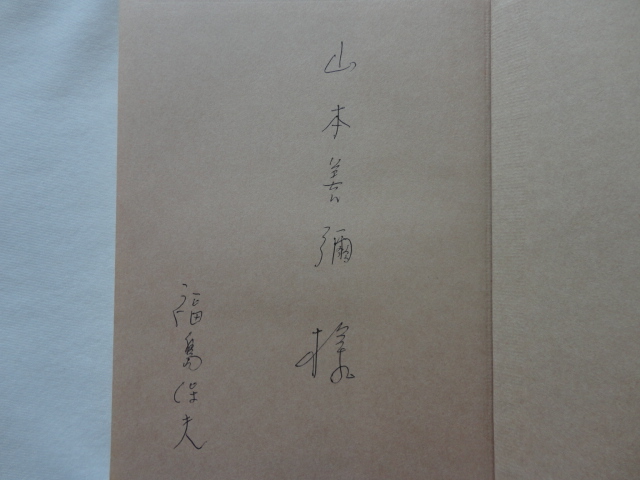 山本善彌様
福島保夫